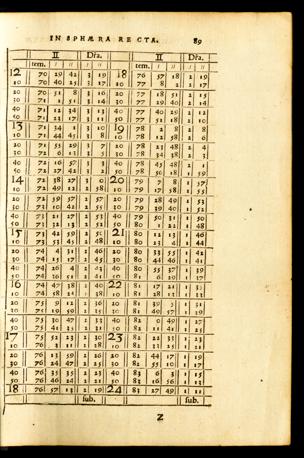 IN SPHÆRA RECTA. 89
II Dra. II Dra.
tem. / // / // tem. / // / //
12 70 29 42 3 19 18 76 57 18 2 19
10 70 40 25 3 17 10 77 8 2 2 17
20 70 51 8 3 16 20 77 18 51 2 15
30 71 1 51 3 14 30 77 29 40 2 14
40 71 12 34 3 11 40 77 40 29 2 12
50 71 23 17 3 11 50 77 51 18 2 10
13 71 34 1 3 10 19 78 2 8 2 8
10 71 44 45 3 8 10 78 12 58 2 6
20 71 55 29 3 7 20 78 23 48 2 4
30 72 6 13 3 5 30 78 34 38 2 3
40 72 16 57 3 3 40 78 45 28 2 1
50 72 27 42 3 2 50 78 56 18 1 59
14 72 38 27 3 0 20 79 7 8 1 57
10 72 49 12 2 58 10 79 17 58 1 55
20 72 59 57 2 57 20 79 28 49 1 53
30 73 10 42 2 55 30 79 39 40 1 52
40 73 21 27 2 53 40 79 50 31 1 50
50 73 32 13 2 52 50 80 1 22 1 48
15 73 42 59 2 50 21 80 12 13 1 46
10 73 53 45 2 48 10 80 23 4 1 44
20 74 4 31 2 46 20 80 33 55 1 42
30 74 15 17 2 45 30 80 44 46 1 41
40 74 26 4 2 43 40 80 55 37 1 39
50 74 36 51 2 41 50 81 6 29 1 37
16 74 47 38 2 40 22 81 17 21 1 35
10 74 58 25 2 38 10 81 28 13 1 33
20 75 9 12 2 36 20 81 39 5 1 31
30 75 19 59 2 35 30 81 49 57 1 29
40 75 30 47 2 33 40 82 0 49 1 27
50 75 41 35 2 31 50 82 11 41 1 25
17 75 52 23 2 30 23 82 22 33 1 23
10 76 3 11 2 28 10 82 33 25 1 21
20 76 13 59 2 26 20 82 44 17 1 19
30 76 24 47 2 25 30 82 55 10 1 17
40 76 35 35 2 23 40 83 6 3 1 15
50 76 46 24 2 21 50 83 16 56 1 13
18 76 57 13 2 19 24 83 27 49 1 11
sub. sub.
Z